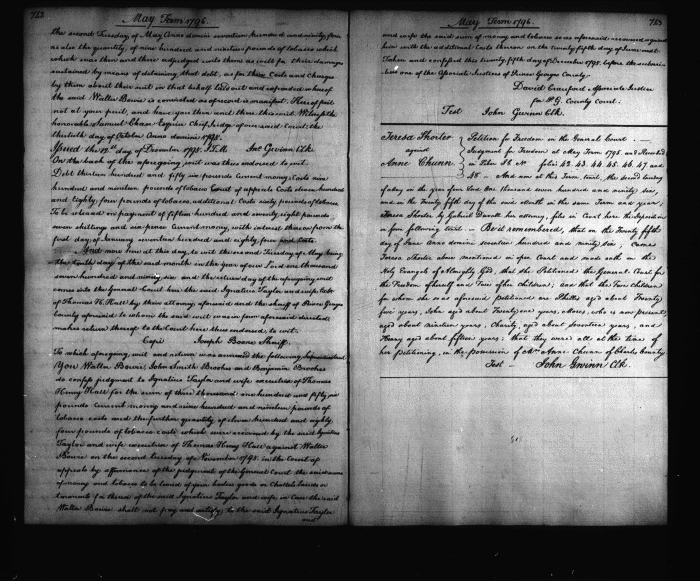 762
May Term 1796.
the second Tuesday of May Anno domini seventeen hundred and ninety four
as also the quantity of nine hundred and nineteen pounds of tobacco which
which was then and there adjudged unto them as well for their damages
sustained by means of detaining that debt, as for their Costs and Charges
by them about their suit in that behalf laid out and expended whereof
the said Walter Bowie is convicted as of record is manifest. Hereof fail
not at your peril, and have you then and there this writ. Witness the
honorable Samuel Chase Esquire Chief Judge of our said Court the
thirtieth day of October Anno domini 1795.
Issued the 12th day of December 1795.
Jno Gwinn Clk
On the back of the aforegoing writ was thus endorsed to wit.
Debt thirteen hundred and fifty six pounds current money, Costs nine
hundred and nineteen pounds of tobacco Court of appeals Costs eleven hundred
and eighty four pounds of tobacco, additional Costs sixty pounds of tobacco
To be released on payment of fifteen hundred and seventy eight pounds
seven shillings and six pence Current money, with interest thereon from the
first day of January seventeen hundred and eighty four and costs
And now here at this day to wit the second Tuesday of May being
the tenth day of the said month in the year of our Lord one thousand
seven hundred and ninety six and the return day of the aforegoing writ
comes into the General Court here the said Ignatius Taylor and wife Exrs
of Thomas H. Hall by their attorney aforesaid and the sheriff of Prince Georges
County aforesaid to whom the said writ was in form aforesaid directed
makes return thereof to the Court here thus endorsed to wit.
Copis Joseph Boone Sheriff
To which aforegoing writ and return was annexed the following
You Walter Bowie, John Smith Brookes and Benjamin Brookes
do confess judgment to Ignatius Taylor and wife executrix of Thomas
Henry Hall for the sum of three thousand one hundred and fifty six
pounds current money and nine hundred and nineteen pounds of
tobacco costs and the further quantity of eleven hundred and eighty
four pounds of tobacco costs which were recovered by the said Ignatius
Taylor and wife executrix of Thomas Henry Hall against Walter
Bowie on the second tuesday of November 1795. in the Court of
appeals by affirmance of the judgment of the General Court the said sums
of money and tobacco to be levied of your bodies goods or Chattels Lands or
tenements for the use of the said Ignatius Taylor and wife in Case the said
Walter Bowie shall not pay and satisfy to the said Ignatius Taylor
and
May Term 1796.
763
and wife the said sum of money and tobacco so as aforesaid recovered against
him with the additional Costs thereon on the twenty fifth day of June next
Taken and confessed this twenty fifth day of December 1795. before the subscriber
one of the Associate Justices of Prince Georges County.
David Craufurd Associate Justice
for P. G. County Court.
Test John Gwinn Clk.
Teresa Shorter
against
Anne Chunn
Petition for Freedom in the General Court
Judgment for Freedom at May Term 1795. and Recorded
in Liber folios 42. 43. 44. 45. 46. 47 and
48 - And now at this Term, to wit, the second Tuesday
of May in the year of our Lord One thousand seven hundred and ninety six,
and on the Twenty fifth day of the said Month in the same Term and year,
Teresa Shorter by Gabriel Duvall her attorney, files in Court here the Deposition
in form following to wit. — Be it remembered, that on the Twenty fifth
day of June Anno domini seventeen hundred and ninety six, Came
Teresa Shorter above mentioned in open Court and made oath on the
Holy Evangels of Almighty God, that she Petitioned the General Court for
the Freedom of herself and Five of her children; and that the Five children
for whom she was aforesaid Petitioned are Phillis aged about Twenty
five years, John aged about Twenty one years, Moses, who is now present,
aged about nineteen years, Charity, aged about seventeen years, and
Henry aged about fifteen years; that they were all at the time of
her Petitioning, in the possession of Mrs Anne Chunn of Charles County
Test — John Gwinn Clk.